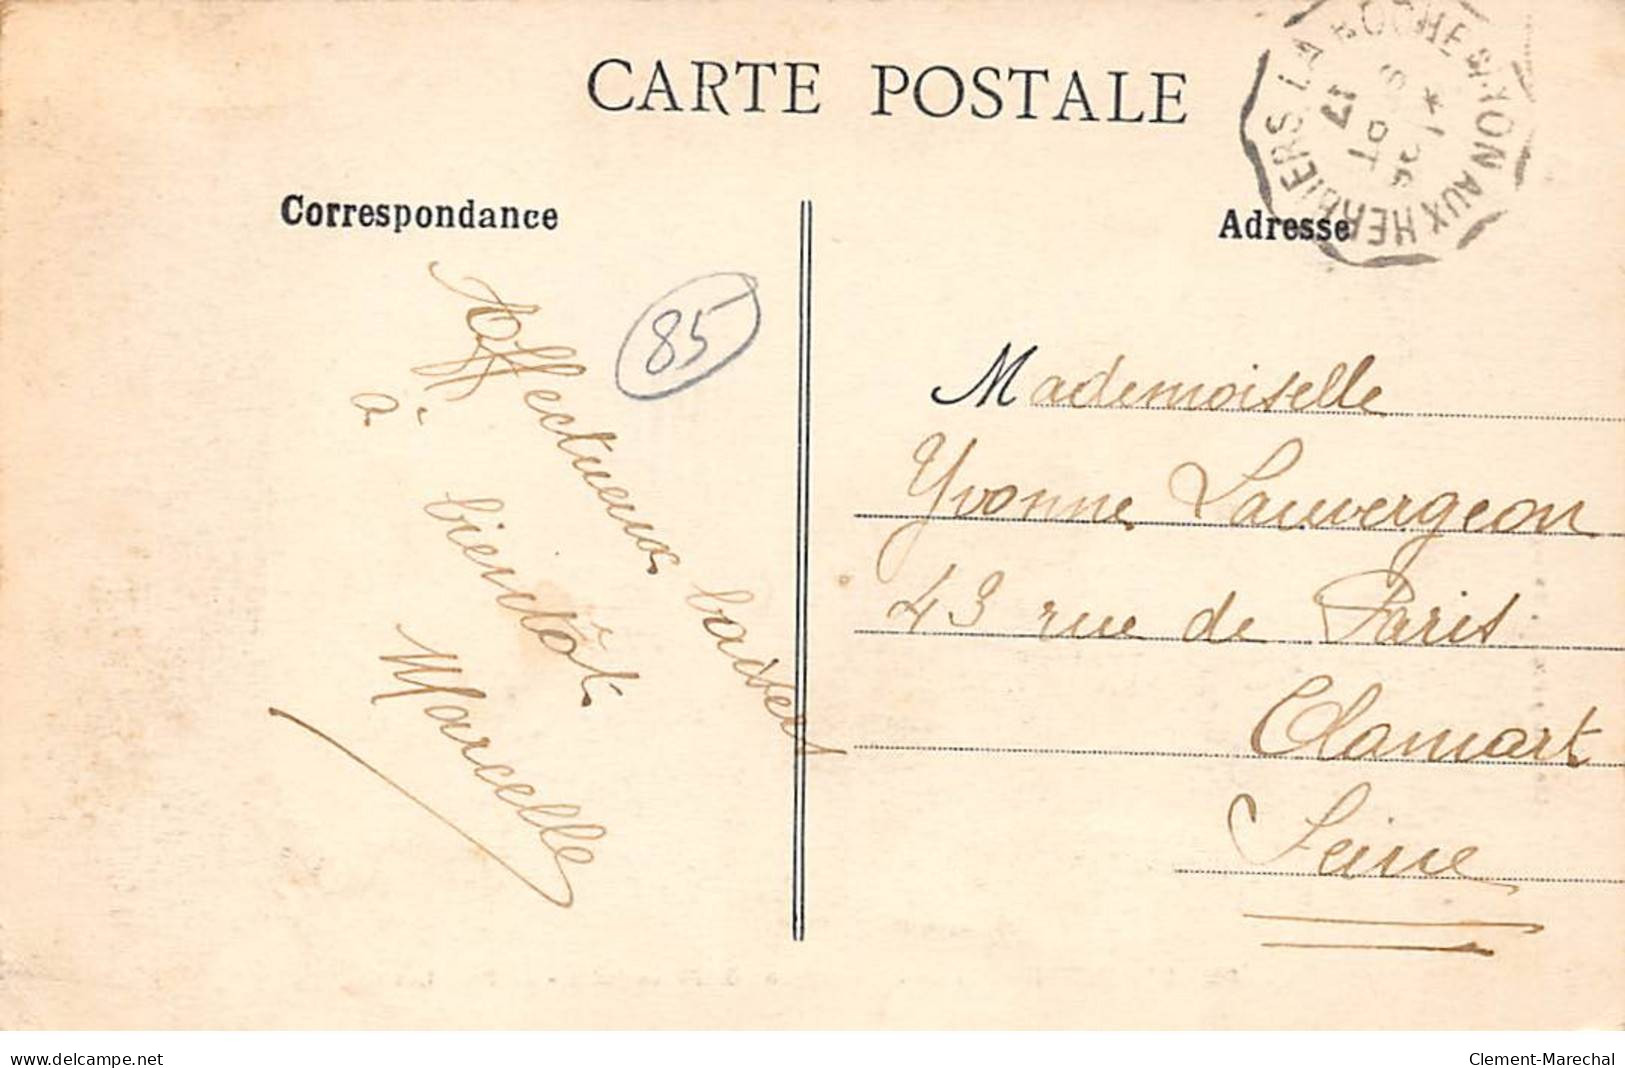 CARTE POSTALE
Correspondance
Adresse
LA ROCHE S-YON AUX HERBIERS
17
85
Affectueux baisers
à bientôt
Marcelle
Mademoiselle
Yvonne Lauvergeon
43 rue de Paris
Clamart
Seine
www.delcampe.net
Clement-Marechal